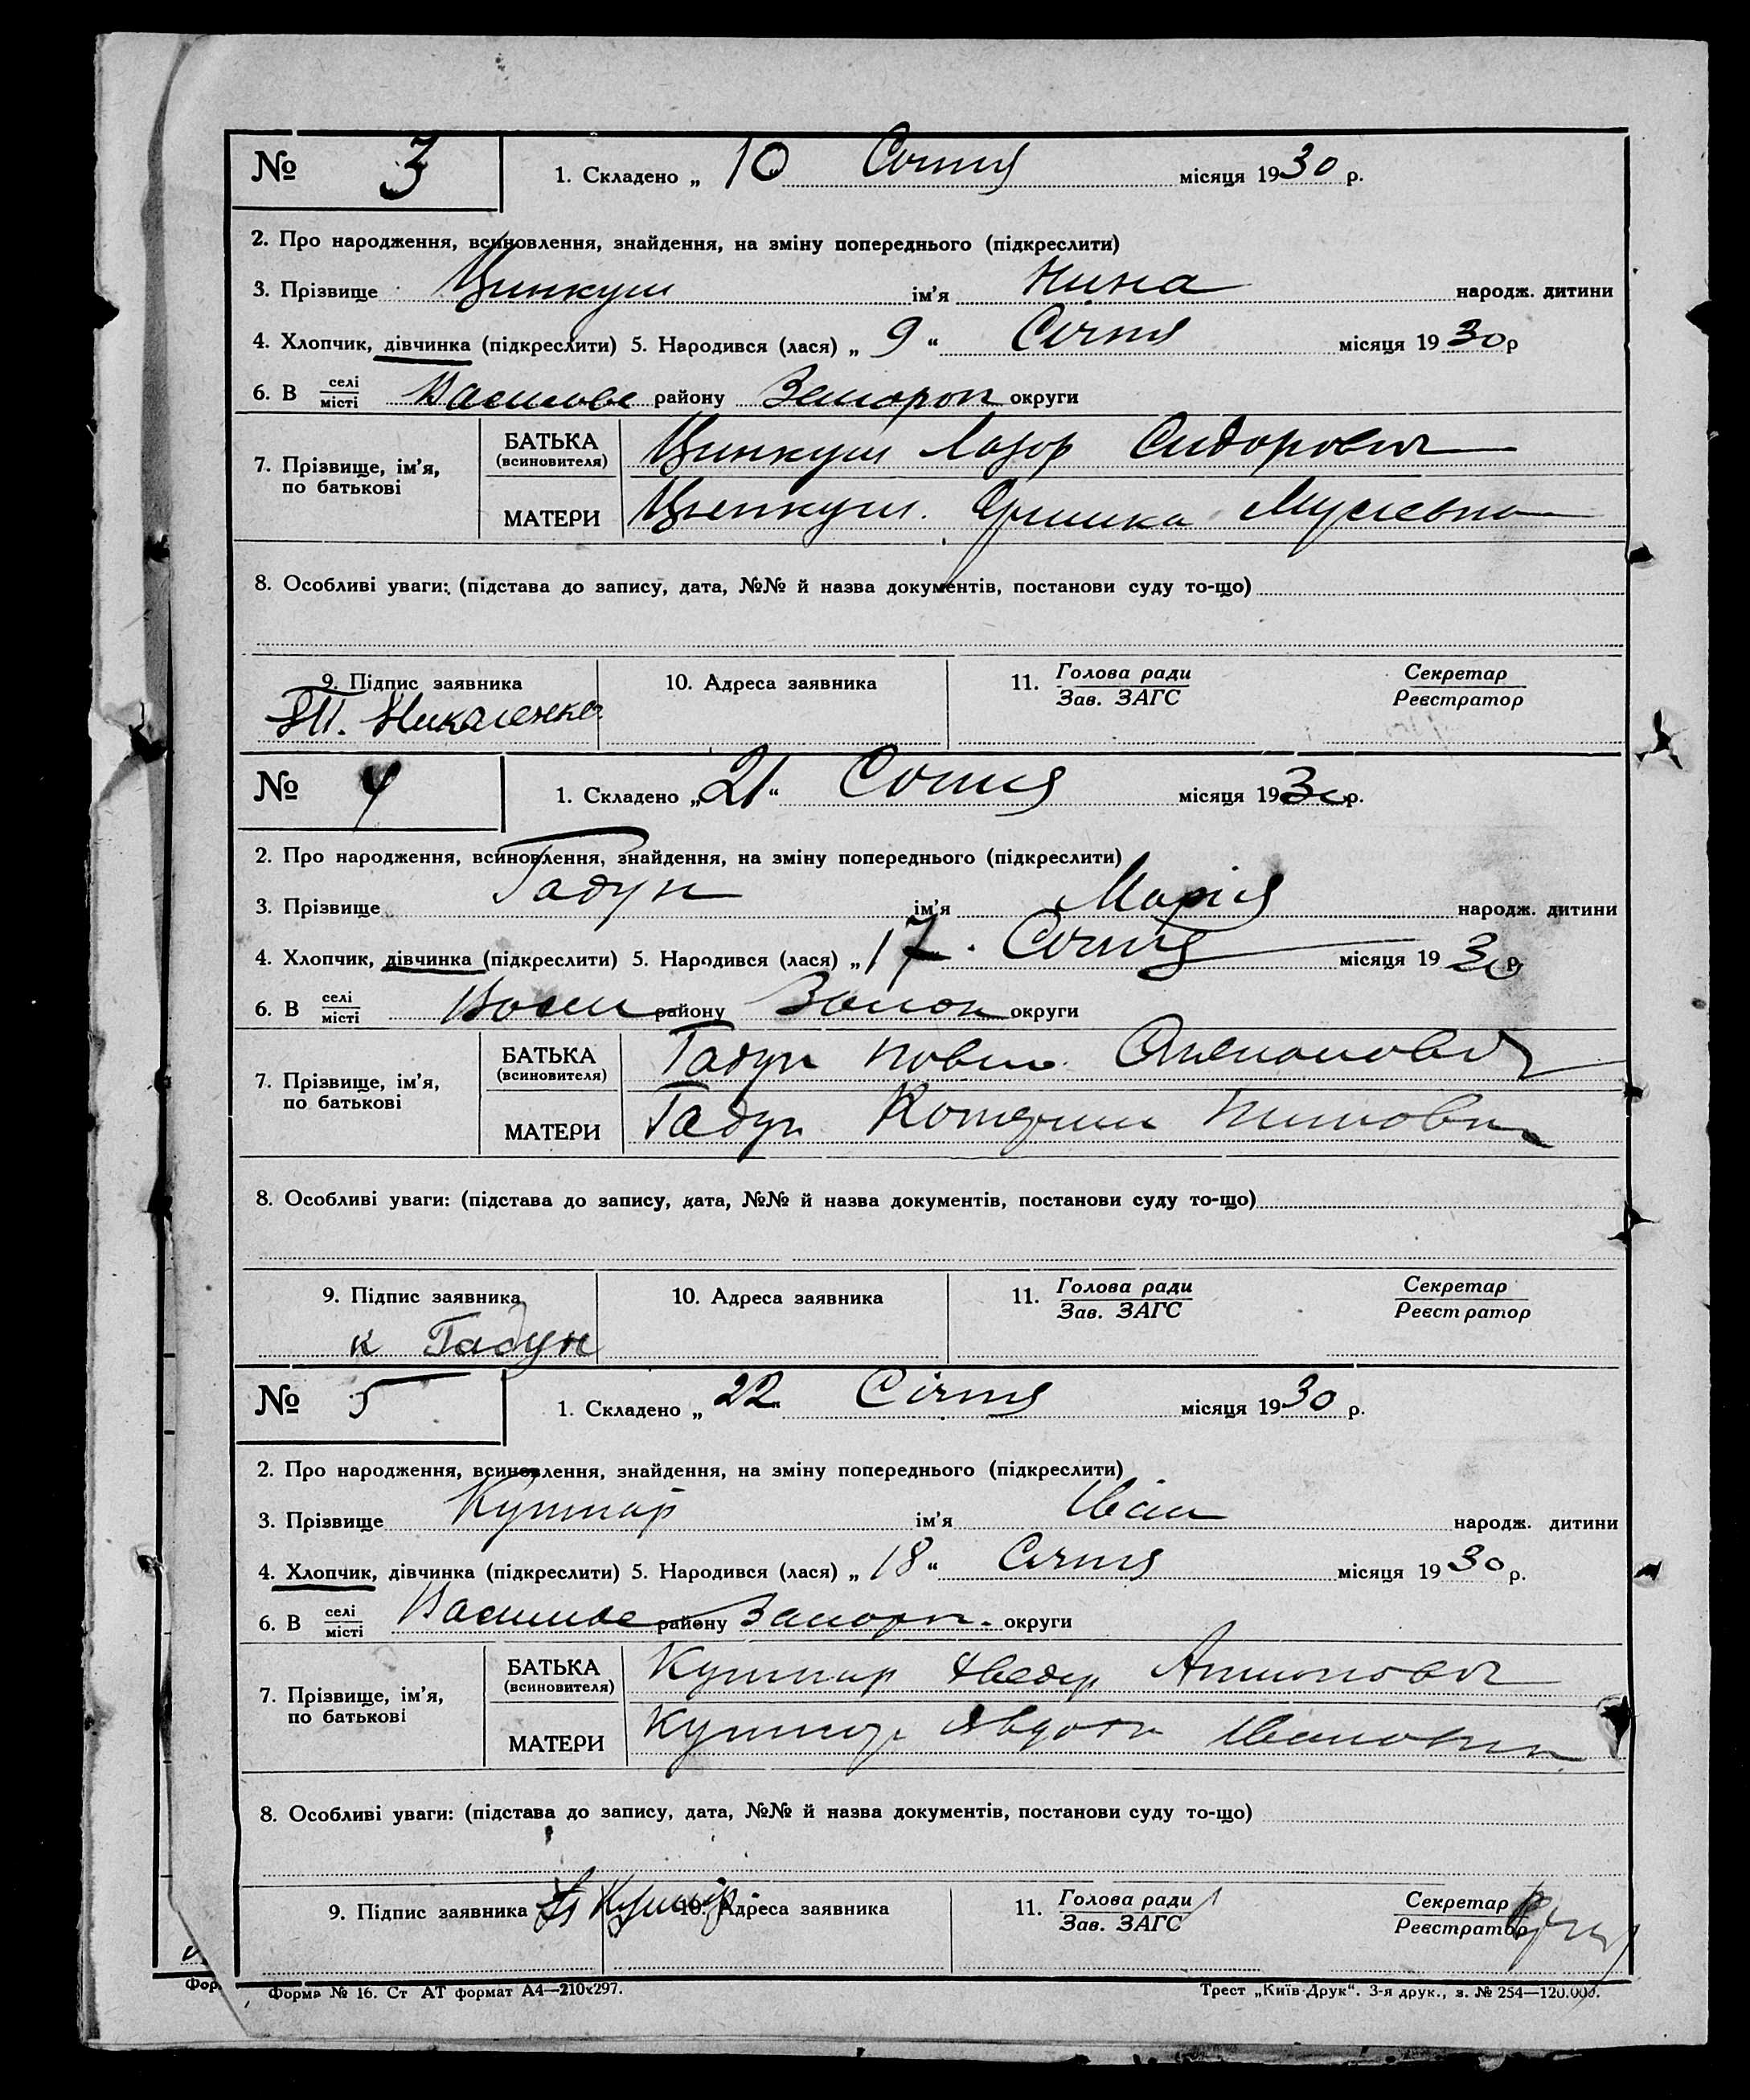 № 3 1. Складено „ 10 Січня місяця 1930 р.
2. Про народження, всиновлення, знайдення, на зміну попереднього (підкреслити)
3. Прізвище Цинкуш ім'я Нина народж. дитини
4. Хлопчик, дівчинка (підкреслити) 5. Народився (лася) „ 9 “ Січня місяця 1930 р
6. В селі місті району Запорож округи
7. Прізвище, ім'я, по батькові
БАТЬКА (всиновителя) Цинкуш Лазор Сидорович
МАТЕРИ Цинкуш
8. Особливі уваги: (підстава до запису, дата, №№ й назва документів, постанови суду то-що)
9. Підпис заявника 10. Адреса заявника 11. Голова ради Зав. ЗАГС Секретар Реєстратор
№ 4 1. Складено „ 21 “ Січня місяця 1930 р.
2. Про народження, всиновлення, знайдення, на зміну попереднього (підкреслити)
3. Прізвище Гадун ім'я Марія народж. дитини
4. Хлопчик, дівчинка (підкреслити) 5. Народився (лася) „ 17 Січня місяця 1930 р
6. В селі місті району округи
7. Прізвище, ім'я, по батькові
БАТЬКА (всиновителя) Гадун Повло
МАТЕРИ Гадун
8. Особливі уваги: (підстава до запису, дата, №№ й назва документів, постанови суду то-що)
9. Підпис заявника 10. Адреса заявника 11. Голова ради Зав. ЗАГС Секретар Реєстратор
к Гадун
№ 5 1. Складено „ 22 Січня місяця 1930 р.
2. Про народження, всиновлення, знайдення, на зміну попереднього (підкреслити)
3. Прізвище Кушнір ім'я Іван народж. дитини
4. Хлопчик, дівчинка (підкреслити) 5. Народився (лася) „ 18 “ Січня місяця 1930 р.
6. В селі місті району Запорж. округи
7. Прізвище, ім'я, по батькові
БАТЬКА (всиновителя) Кушнир Хведер Антонович
МАТЕРИ Кушнір Явдоха Івановна
8. Особливі уваги: (підстава до запису, дата, №№ й назва документів, постанови суду то-що)
9. Підпис заявника Кушнір 10. Адреса заявника 11. Голова ради Зав. ЗАГС Секретар Реєстратор
Форма № 16. Ст АТ формат А4—210x297. Трест „Київ-Друк“. 3-я друк., з. № 254—120.000.